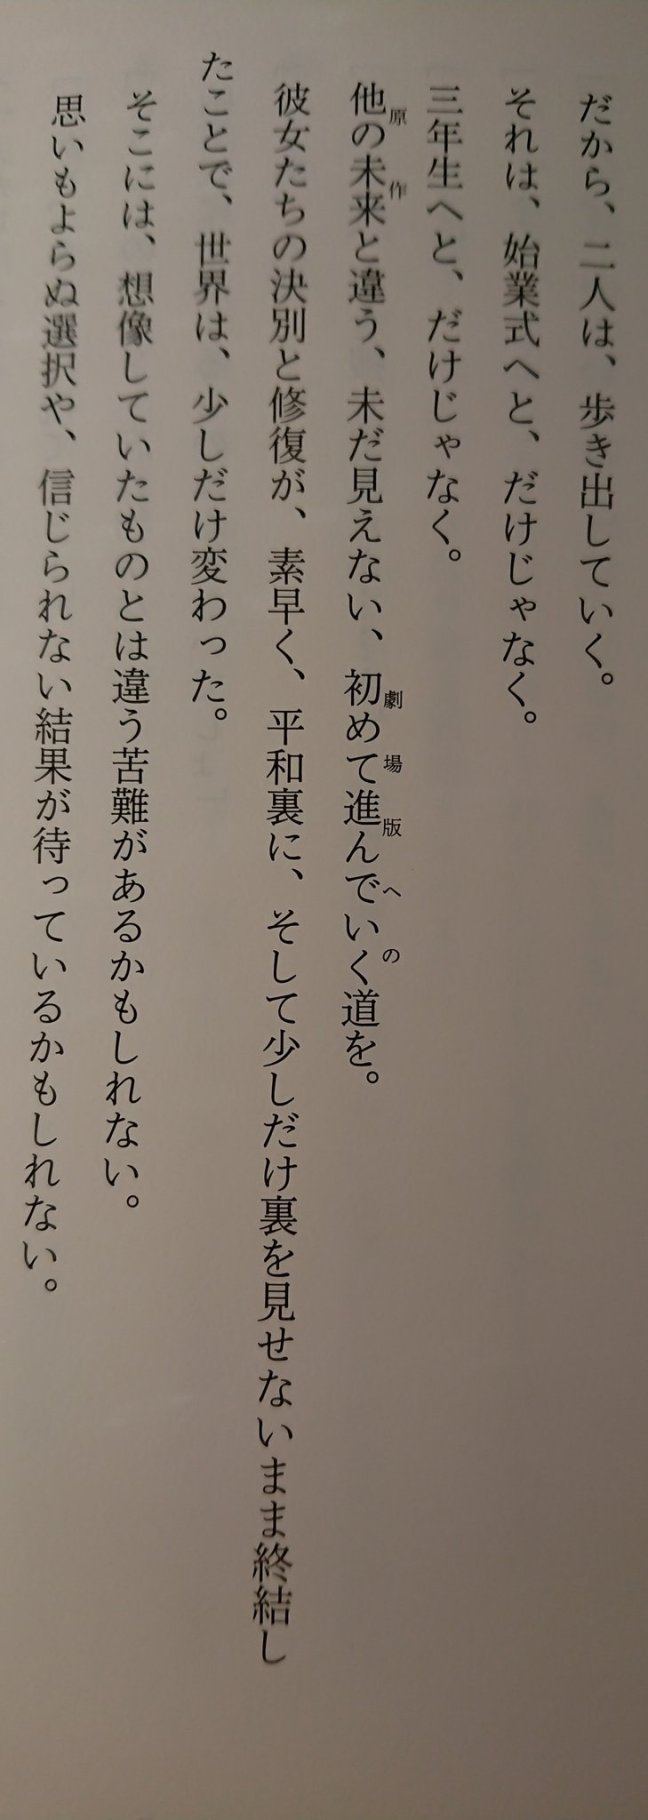 だから、二人は、歩き出していく。
それは、始業式へと、だけじゃなく。
三年生へと、だけじゃなく。
原作
他の未来と違う、未だ見えない、初めて進んでいく道を。
劇場版への
彼女たちの決別と修復が、素早く、平和裏に、そして少しだけ裏を見せないまま終結し
たことで、世界は、少しだけ変わった。
そこには、想像していたものとは違う苦難があるかもしれない。
思いもよらぬ選択や、信じられない結果が待っているかもしれない。